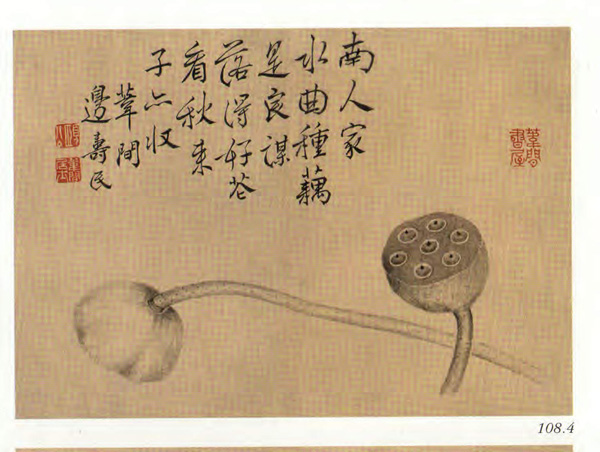 南人家
水曲種藕
是良謀
落得好花
看秋来
子亦收
葦間
邊壽民
葦間
書屋
108.4